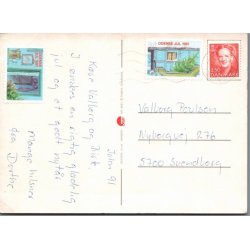 Julen 91
Kære Valborg og Birk.
I ønskes en rigtig glædelig
jul og et godt nytår
Mange hilsner
fra Dorthe
ODENSE JUL 1991
3.50
DANMARK
Valborg Poulsen
Nyborgvej 276
5700 Svendborg